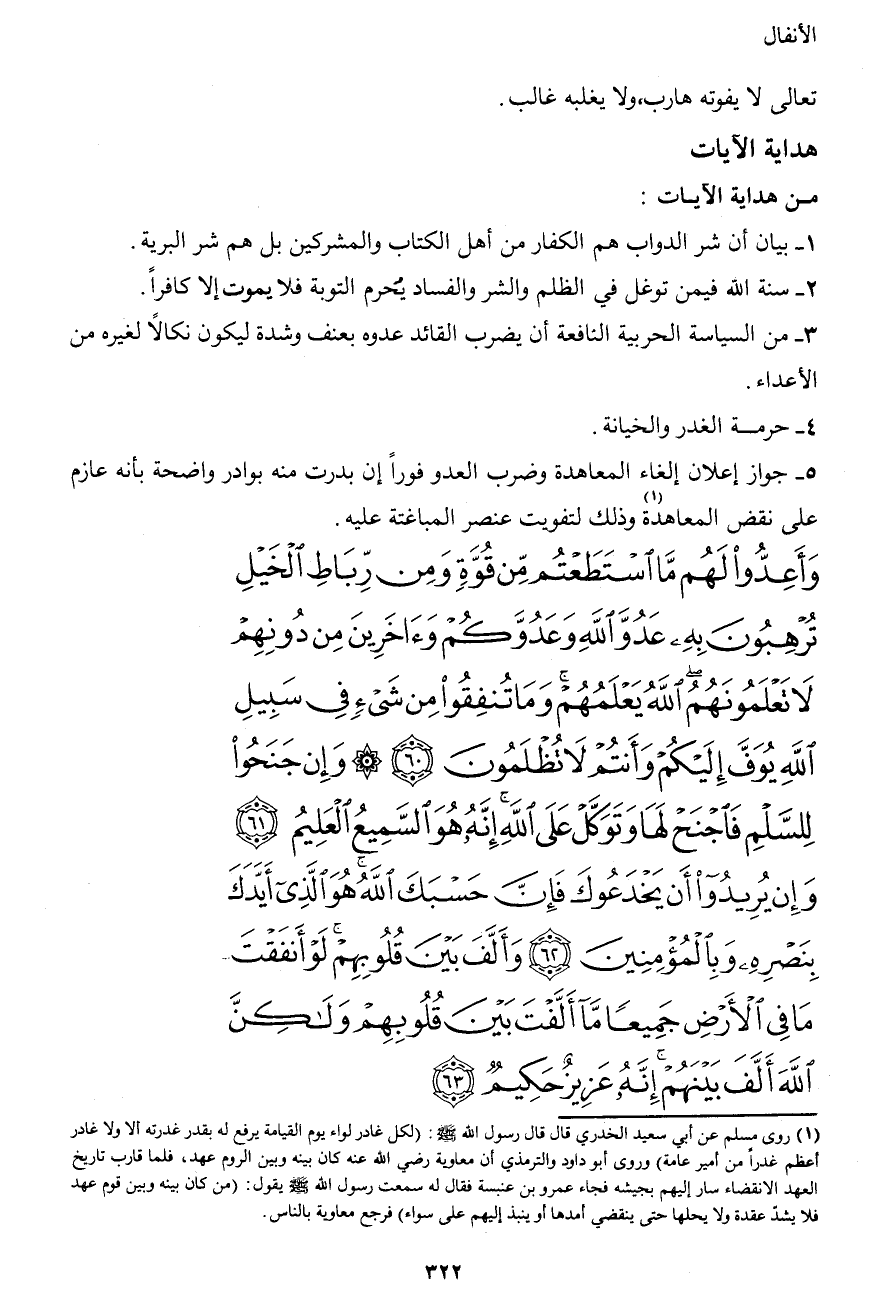 الأنفال
تعالى لا يفوته هارب،ولا يغلبه غالب.
هداية الآيات
مـن هداية الآيـات :
١ـ بيان أن شر الدواب هم الكفار من أهل الكتاب والمشركين بل هم شر البرية.
٢ـ سنة الله فيمن توغل في الظلم والشر والفساد يُحرم التوبة فلا يموت إلا كافراً.
٣ـ من السياسة الحربية النافعة أن يضرب القائد عدوه بعنف وشدة ليكون نكالًا لغيره من
الأعداء.
٤ـ حرمـة الغدر والخيانة.
٥ـ جواز إعلان إلغاء المعاهدة وضرب العدو فوراً إن بدرت منه بوادر واضحة بأنه عازم
على نقض المعاهدة(١) وذلك لتفويت عنصر المباغتة عليه.
وَأَعِدُّوا۟ لَهُم مَّا ٱسْتَطَعْتُم مِّن قُوَّةٍ وَمِن رِّبَاطِ ٱلْخَيْلِ
تُرْهِبُونَ بِهِۦ عَدُوَّ ٱللَّهِ وَعَدُوَّكُمْ وَءَاخَرِينَ مِن دُونِهِمْ
لَا تَعْلَمُونَهُمُ ۖ ٱللَّهُ يَعْلَمُهُمْ ۚ وَمَا تُنفِقُوا۟ مِن شَىْءٍ فِى سَبِيلِ
ٱللَّهِ يُوَفَّ إِلَيْكُمْ وَأَنتُمْ لَا تُظْلَمُونَ ٦٠ ۞ وَإِن جَنَحُوا۟
لِلسَّلْمِ فَٱجْنَحْ لَهَا وَتَوَكَّلْ عَلَى ٱللَّهِ ۚ إِنَّهُۥ هُوَ ٱلسَّمِيعُ ٱلْعَلِيمُ ٦١
وَإِن يُرِيدُوٓا۟ أَن يَخْدَعُوكَ فَإِنَّ حَسْبَكَ ٱللَّهُ ۚ هُوَ ٱلَّذِىٓ أَيَّدَكَ
بِنَصْرِهِۦ وَبِٱلْمُؤْمِنِينَ ٦٢ وَأَلَّفَ بَيْنَ قُلُوبِهِمْ ۚ لَوْ أَنفَقْتَ
مَا فِى ٱلْأَرْضِ جَمِيعًا مَّآ أَلَّفْتَ بَيْنَ قُلُوبِهِمْ وَلَٰكِنَّ
ٱللَّهَ أَلَّفَ بَيْنَهُمْ ۚ إِنَّهُۥ عَزِيزٌ حَكِيمٌ ٦٣
(١) روى مسلم عن أبي سعيد الخدري قال قال رسول الله ﷺ: (لكل غادر لواء يوم القيامة يرفع له بقدر غدرته ألا ولا غادر
أعظم غدراً من أمير عامة) وروى أبو داود والترمذي أن معاوية رضي الله عنه كان بينه وبين الروم عهد، فلما قارب تاريخ
العهد الانقضاء سار إليهم بجيشه فجاء عمرو بن عنبسة فقال له سمعت رسول الله ﷺ يقول: (من كان بينه وبين قوم عهد
فلا يشدّ عقدة ولا يحلها حتى ينقضي أمدها أو ينبذ إليهم على سواء) فرجع معاوية بالناس.
٣٢٢